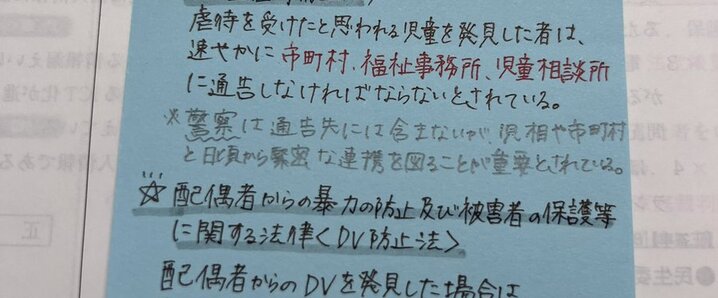 虐待を受けたと思われる児童を発見した者は、
速やかに市町村、福祉事務所、児童相談所
に通告しなければならないとされている。
※警察は通告先には含まないが、児相や市町村
と日頃から緊密な連携を図ることが重要とされている。
☆配偶者からの暴力の防止及び被害者の保護等
に関する法律<DV防止法>
配偶者からのDVを発見した場合は
正